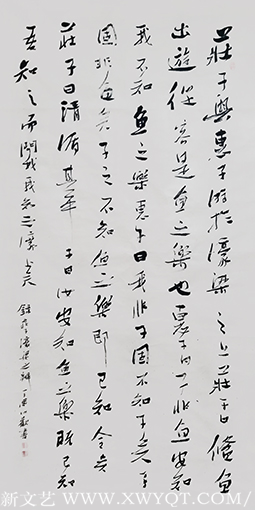 莊子與惠子游於濠梁之上莊子曰儵魚
出遊從容是魚之樂也惠子曰子非魚安知
我不知魚之樂惠子曰我非子固不知子矣子
固非魚矣子之不知魚之樂
莊子曰請循其本子曰汝安知魚之樂既已知
吾知之而問我我知之濠上矣
濠梁之辯
新文艺 / WWW.XWYQT.COM